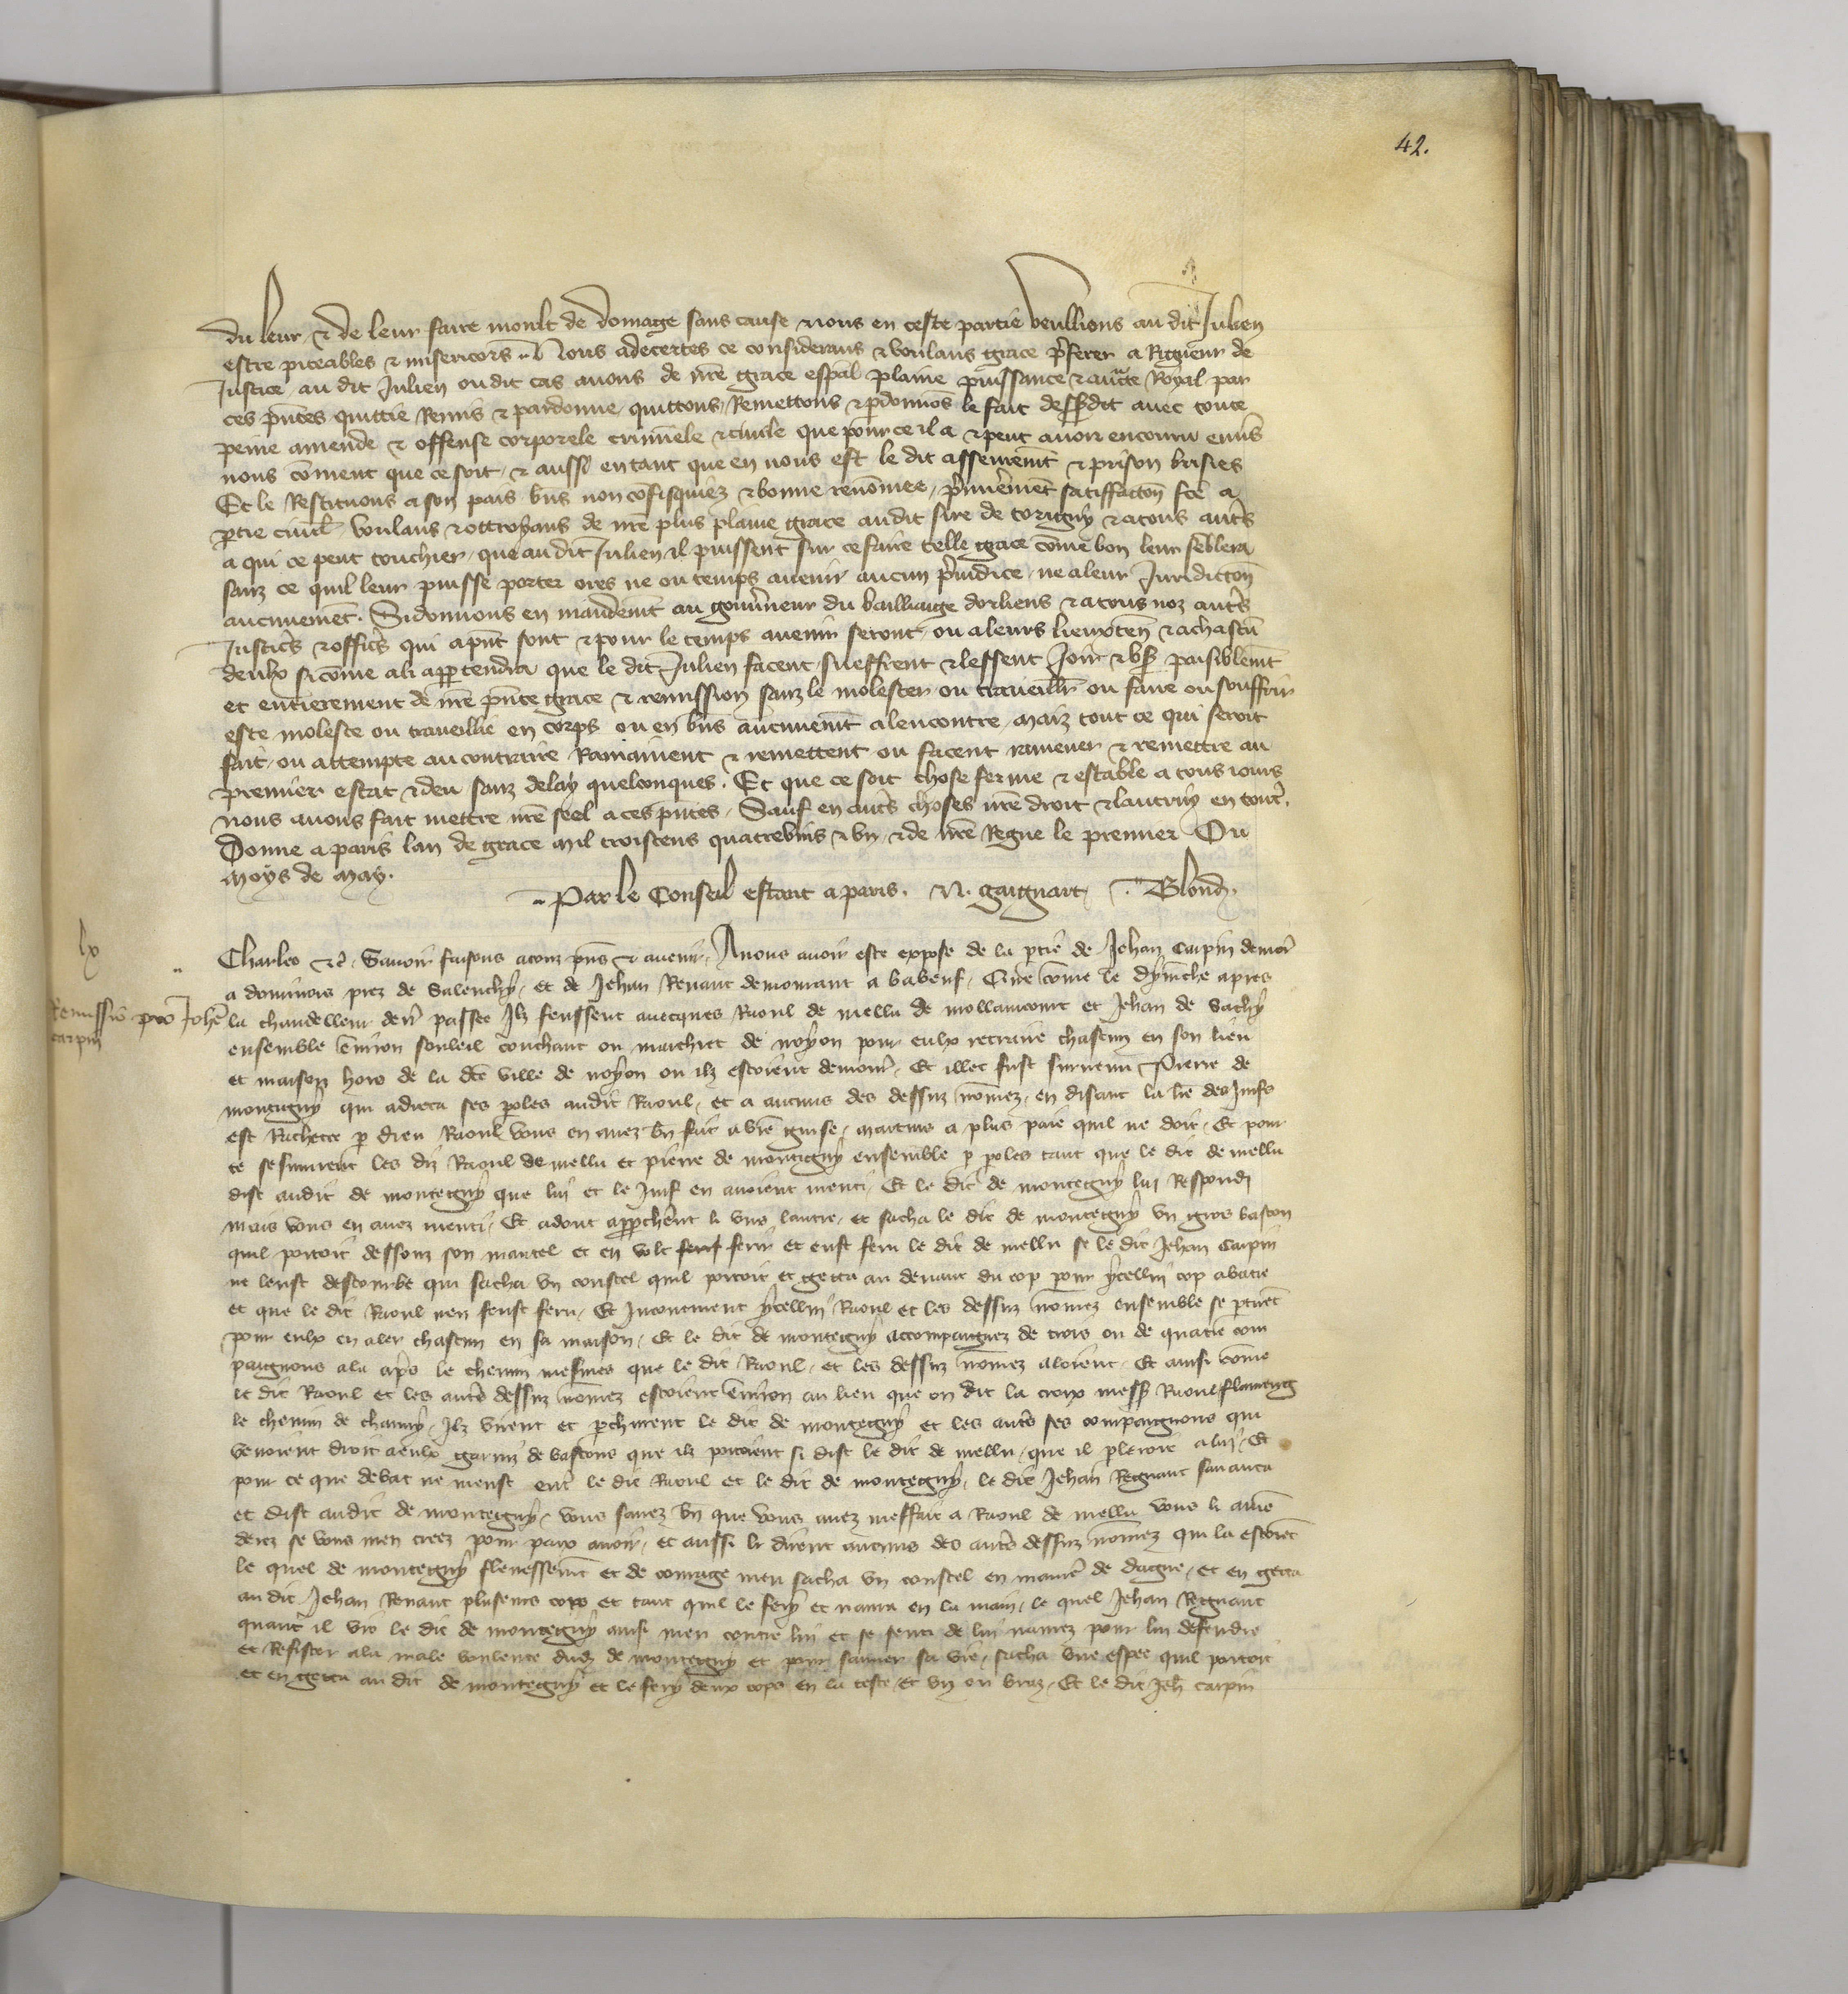 42.
du leur, & de leur faire moult de domage sans cause nous en ceste partie veullions au dit Julien
estre piteables & misericors. Nous adecertes ce considerans & voulans grace pferer a Rigueur de
Justice, au dit Julien ou dit cas avons de nre grace espal plaine puissance & aucte Royal par
ces pntes quittie Remis & pardonne, quittons, Remettons & pdonnos le fait dessusdit avec toute
peine amende & offense corporele criminele & civile que pour ce il a & peut avoir encouru envs
nous coment que ce soit, & aussi en tant que en nous est le dit asseuremt & prison brisies
Et le Restituons a son pais bns non cofisquiez & bonne renomee, pmierement satiffaccon fce a
ptie civilt, voulans & ottroyans de nre plus plaine grace au dit sire de torigny & a tous auts
a qui ce peut touchier, que au dit Julien il puissent sur ce faire telle grace come bon leur seblera
sanz ce quil leur puisse porter ores ne ou temps avenir aucun piudice, ne a leur Juridiccon
aucunemet. Si donnons en mandemt au gouvneur du bailliaige dorliens & a tous noz auts
Justics & offics qui a pnt sont & pour le temps avenir seront, ou a leurs lieuxten & a chascu
deulx si come a li appartendra que le dit Julien facent, sueffrent & lessent Joir & us paisiblemt
et entierement de nre pnte grace & remission sanz le molester ou traveillr ou faire ou souffrir
este moleste ou traveillie en corps ou en bns aucunemt a lencontre, maiz tout ce qui seroit
fait, ou attempte au contraire Ramainent & remettent ou facent ramener & remettre au
premier estat & deu sanz delay quelconques. Et que ce soit chose ferme & estable a tous iours
nous avons fait mettre nre seel a ces pntes. Sauf en auts choses nre droit & lautruy en tout.
Donne a paris lan de grace mil troiscens quatrevins & un, & de nre Regne le premier Ou
moys de may.
Par le Conseil estant a paris. N. gaignart. Blond.
lx
Remissio pro Johe
carpin
Charles &c. Savoir faisons a touz pns & avenir, A nous avoir este expose de la ptie de Jehan Carpin demor
a dominois prez de Salenchy, et de Jehan Renaut demourant a babeuf, Que come le dymenche apres
la chandelleur denr passee Ilz feussent avecques Raoul de mellu de mollaincourt et Jehan de Sachy
ensemble environ souleil couchant ou marchiet de noyon pour eulx retraire chascun en son lieu
et maison hors de la dce ville de noyon ou ilz estoient demour, Et illec fust survenu Pierre de
montigny qui adreca ses poles audit Raoul, et a aucuns des dessuz nomez, en disant la lre des Juifs
est Rachetee p dieu Raoul vous en avez bn fait a vre guise, martins a plus paie quil ne doit, Et pour
ce sesmurent les diz Raoul de mellu et pierre de montigny ensemble p poles tant que le dit de mellu
dist audit de montegny que lui et le Juif en avoient menti, Et le dit de montegny lui Respondi
mais vous en avez menti, Et adont approcherent li uns lautre, et sacha le dit de montegny un gros baston
quil portoit dessouz son mantel et en volt ferir et eust feru le dit de mellu se le dit Jehan Carpin
ne leust destourbe qui sacha un coustel quil portoit et getta au devant du cop pour ycellui cop abatre
et que le dit Raoul nen feust feru, Et Incontinent ycellui Raoul et les dessuz nomez ensemble se ptiret
pour eulx en aler chascun en sa maison, Et le dit de monteigny accompaignez de trois ou de quatre com
paignons ala aps le chemin mesmes que le dit Raoul, et les dessuz nomez aloient, Et ainsi come
le dit Raoul et les auts dessuz nomez estoient environ au lieu que on dit la croix mess Raoul flameng
le chemin de chauny, Ilz virent et pchurent le dit de montegny et les auts ses compaignons qui
venoient droit a eulx garniz de bastons que ilz portoient si dist le dit de mellu, que il pleroie a lui, Et
pour ce que debat ne meust entr le dit Raoul et le dit de montegny, le dit Jehan Regnaut savanca
et dist audit de monteigny, vous savez bn que vous avez meffait a Raoul de mellu vous li ame
derez se vous men creez pour paix avoir, et aussi li dirent aucuns des auts dessuz nomez qui la estoiet
le quel de montegny felenessemt et de courage meu sacha un coustel en manie de dague, et en getta
au dit Jehan Renaut pluseurs cops et tant quil le fery et navra en la main, le quel Jehan Regnaut
quant il vit le dit de montegny ainsi meu contre lui et se senti de lui navrez pour lui defendre
et Resister a la male voulente dudz de monteigny et pour sauver sa vie, sacha une espee quil portoit
et en getta au dit de montegny et le fery deux cops en la teste, et un ou braz, Et le dit Jeh carpin